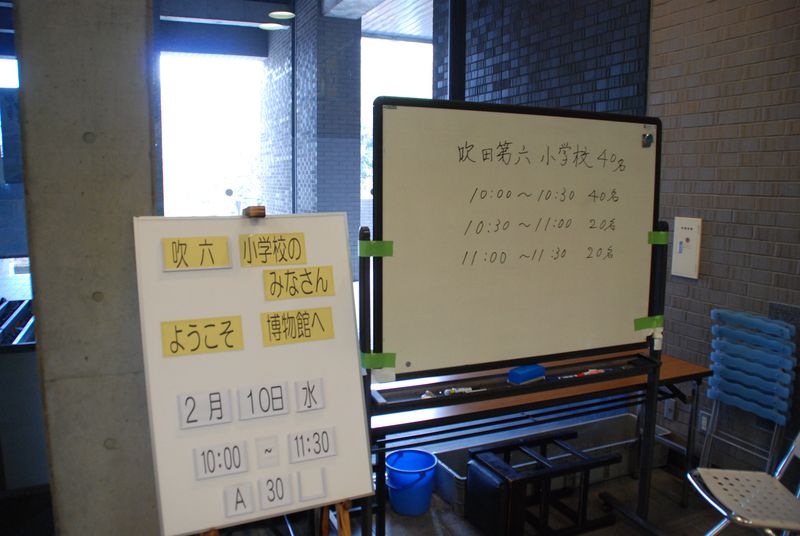 吹六 小学校の
みなさん
ようこそ 博物館へ
2月 10日 水
10:00 ~ 11:30
A 30
吹田第六小学校 40名
10:00 〜 10:30 40名
10:30 〜 11:00 20名
11:00 〜 11:30 20名